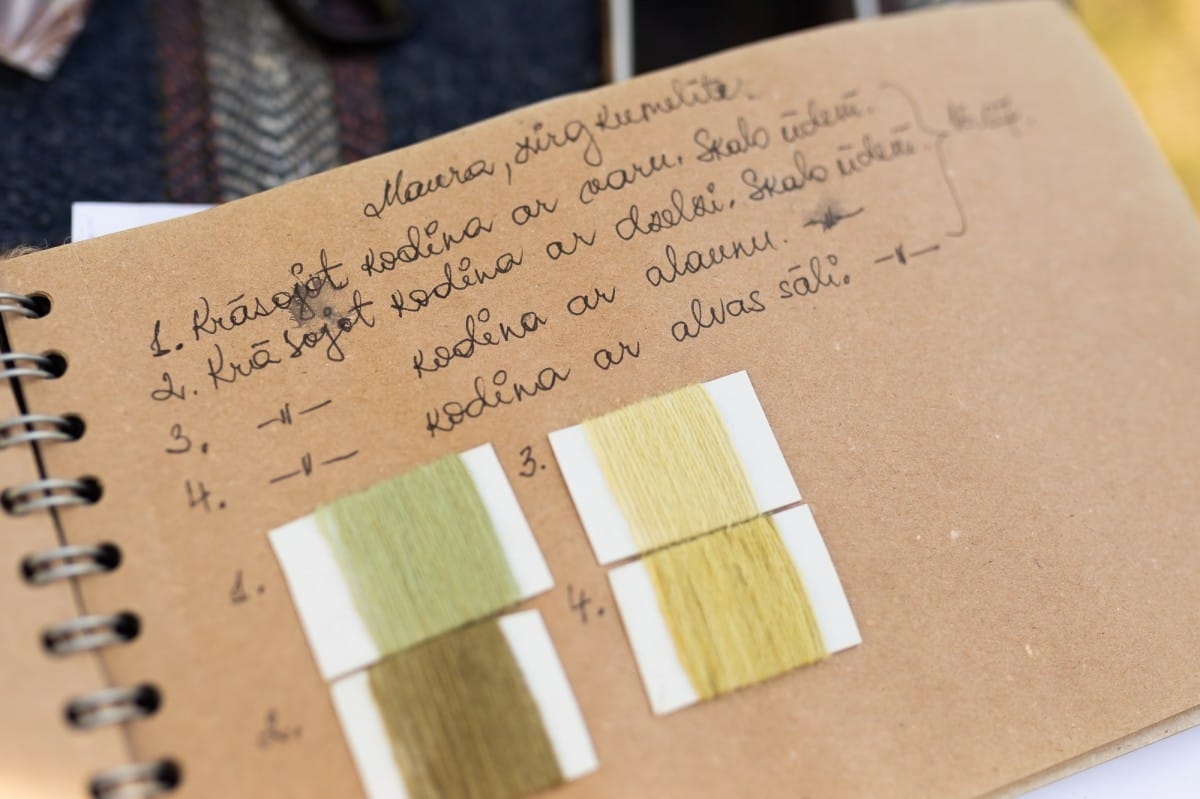 Maura, zirgkumelīte.
1. Krāsojot kodina ar varu. Skalo ūdenī.
2. Krāsojot kodina ar dzelzi. Skalo ūdenī.
3. —〃— kodina ar alaunu. —〃—
4. —〃— kodina ar alvas sāli. —〃—
3.
1.
4.
2.